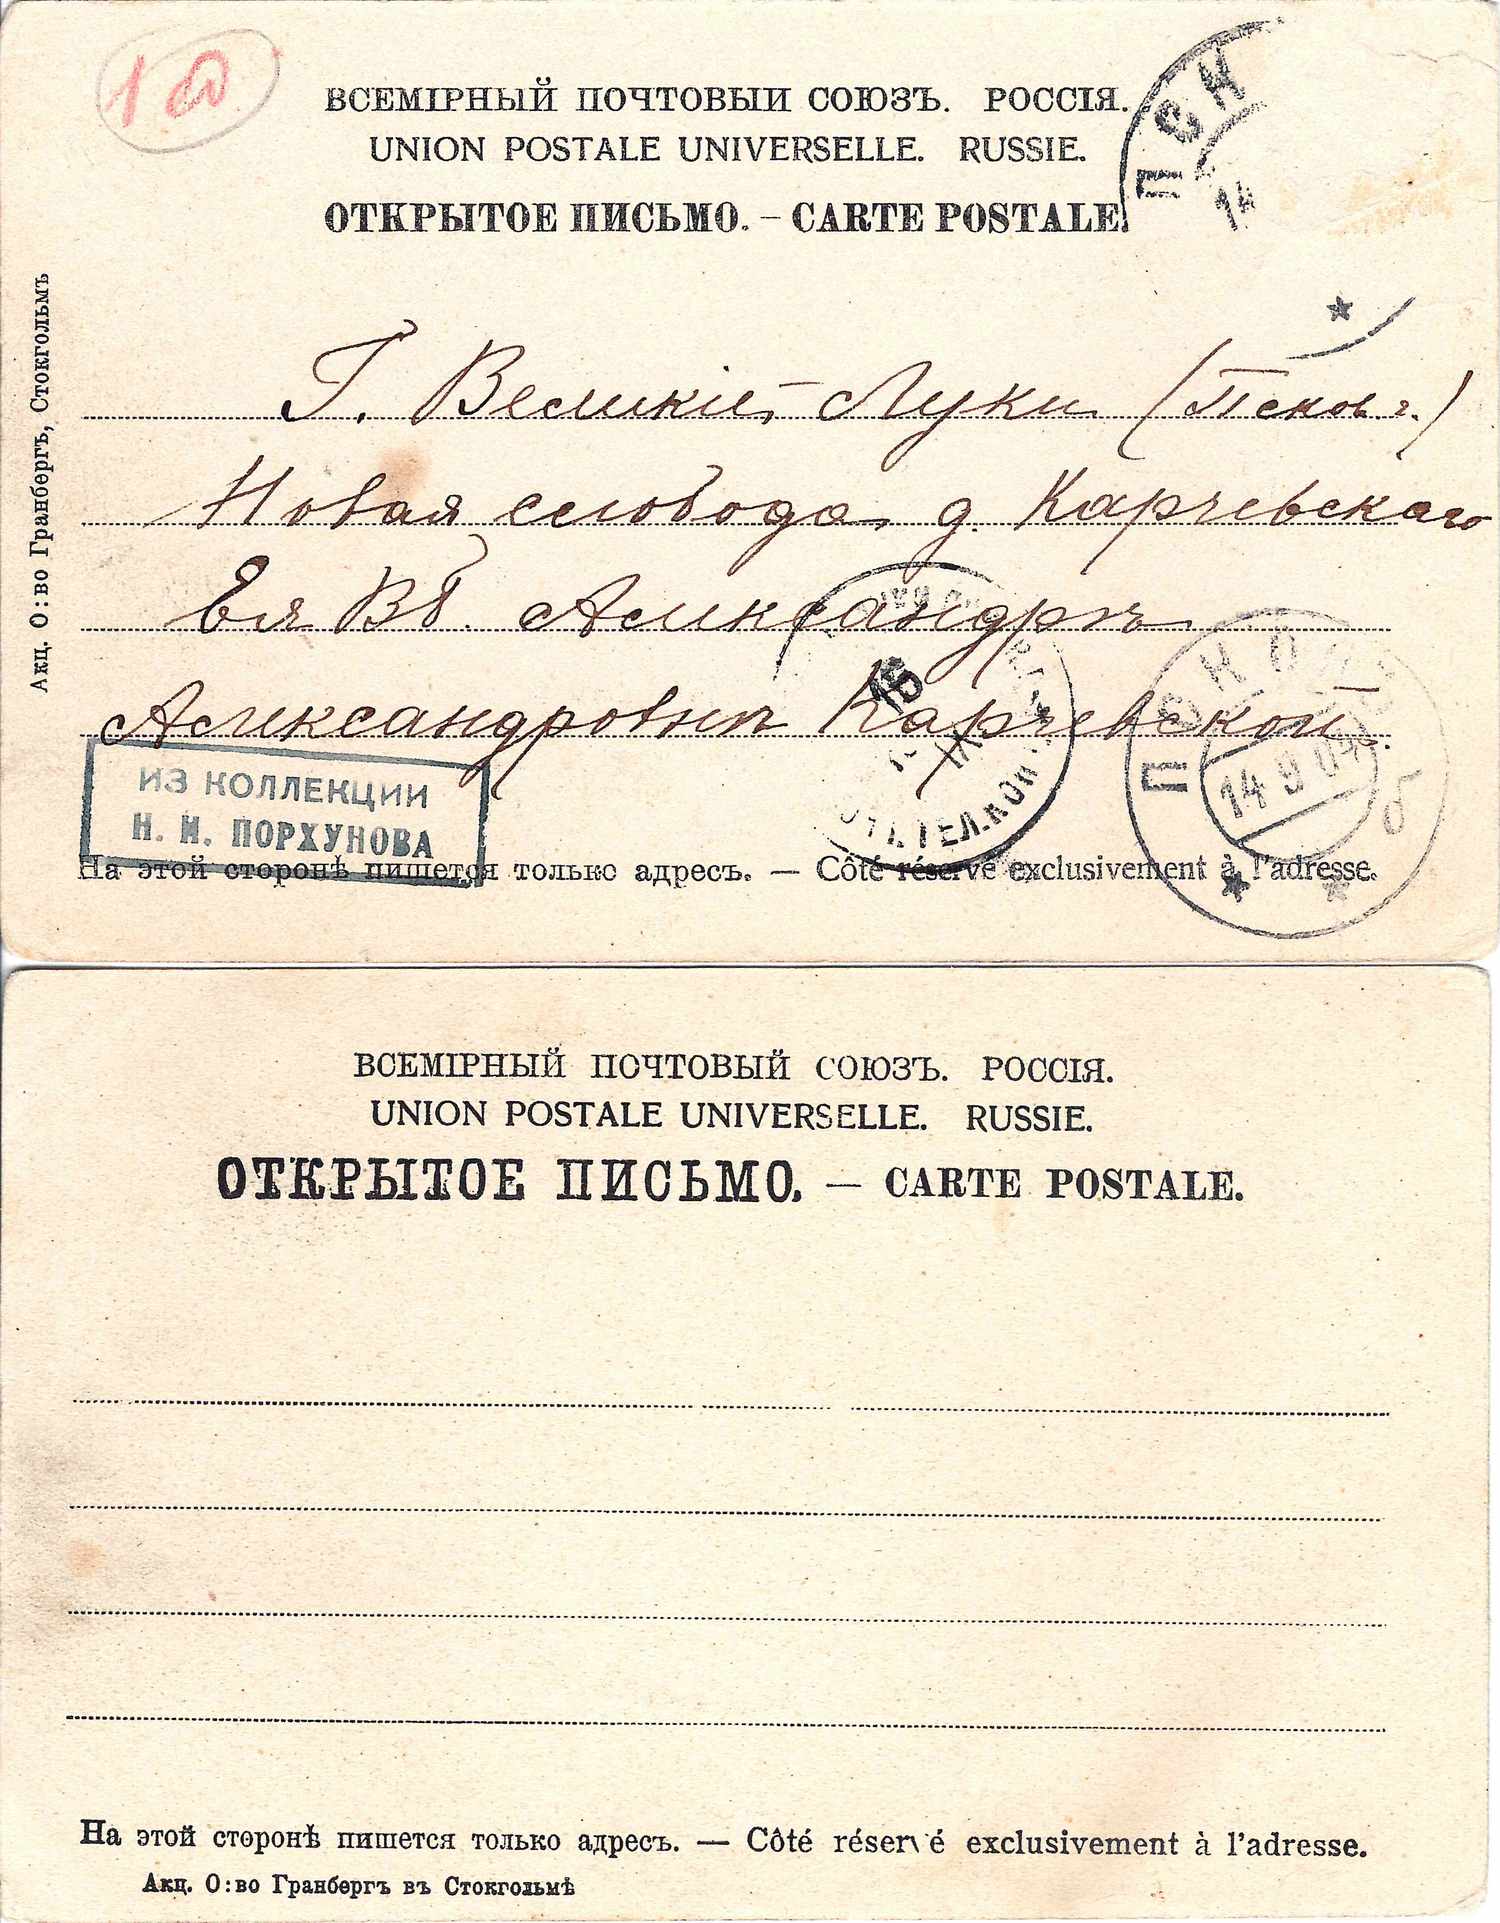 10
ВСЕМІРНЫЙ ПОЧТОВЫИ СОЮЗЪ. РОССІЯ.
UNION POSTALE UNIVERSELLE. RUSSIE.
ОТКРЫТОЕ ПИСЬМО. – CARTE POSTALE.
ПСК
14
Акц. О:во Гранбергъ, Стокгольмъ
Г. Великіе-Луки (Псков. г.)
Новая слобода, д. Карчевскаго
Ея Вб. Александрѣ
Александровнѣ Карчевской.
15
IX
ПОЧТ. ТЕЛ. КОН
ПСКОВ
14 9 04
б
ИЗ КОЛЛЕКЦИИ
Н. И. ПОРХУНОВА
На этой сторонѣ пишется только адресъ. — Côté réservé exclusivement à l'adresse.
ВСЕМІРНЫЙ ПОЧТОВЫЙ СОЮЗЪ. РОССІЯ.
UNION POSTALE UNIVERSELLE. RUSSIE.
ОТКРЫТОЕ ПИСЬМО. — CARTE POSTALE.
На этой сторонѣ пишется только адресъ. — Côté réservé exclusivement à l'adresse.
Акц. О:во Гранбергъ въ Стокгольмѣ